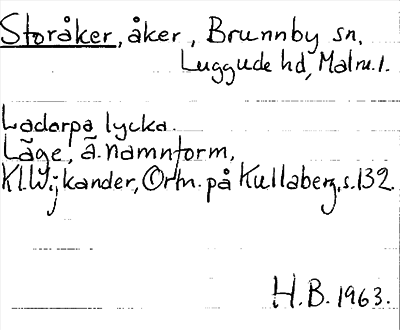 Storåker, åker, Brunnby sn,
Luggude hd, Malm. l.
Ladorpa lycka.
Läge, ä. namnform,
Kl. Wijkander, Ortn. på Kullaberg, s. 132.
H.B. 1963.